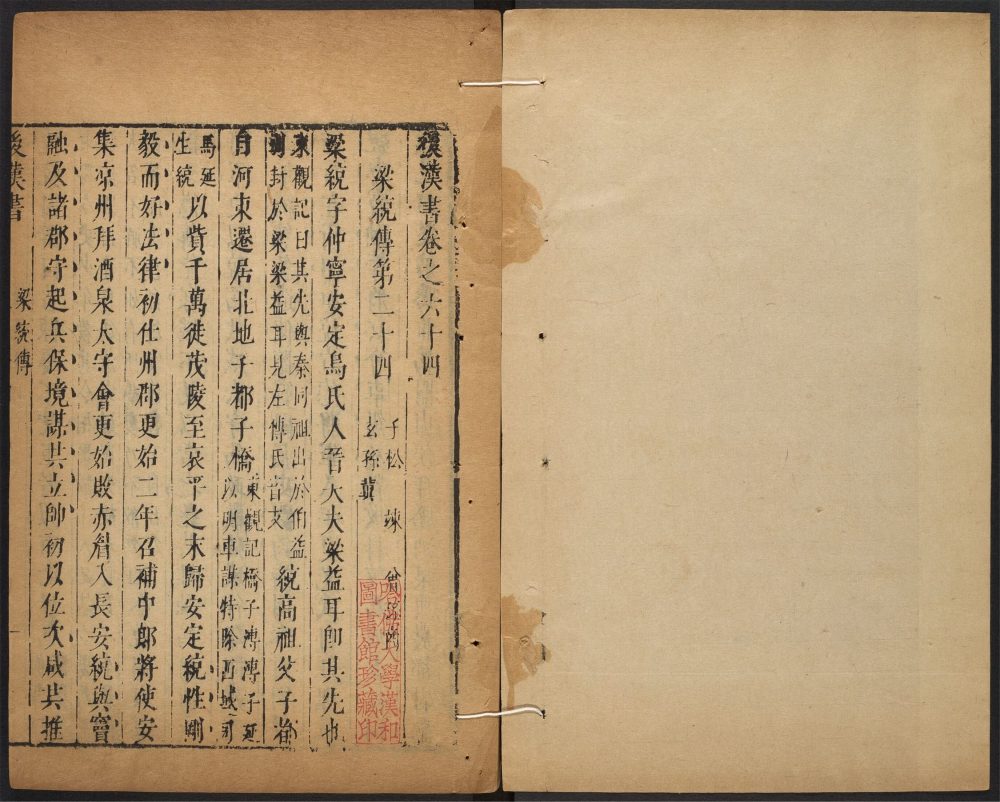 後漢書卷之六十四
梁統傳第二十四
子松 竦 曾孫商
玄孫冀
梁統字仲寧安定烏氏人晉大夫梁益耳即其先也
東觀記曰其先與秦同祖出於伯益
別封於梁梁益耳見左傳氏音支
統高祖父子都
自河東遷居北地子都子橋
東觀記橋子溥溥子延
以明軍謀特除西域司
馬延
生統
以貲千萬徙茂陵至哀平之末歸安定統性剛
毅而好法律初仕州郡更始二年召補中郎將使安
集凉州拜酒泉太守會更始敗赤眉入長安統與竇
融及諸郡守起兵保境謀共立帥初以位次咸共推
後漢書
梁統傳
一
哈佛大學漢和
圖書館珍藏印